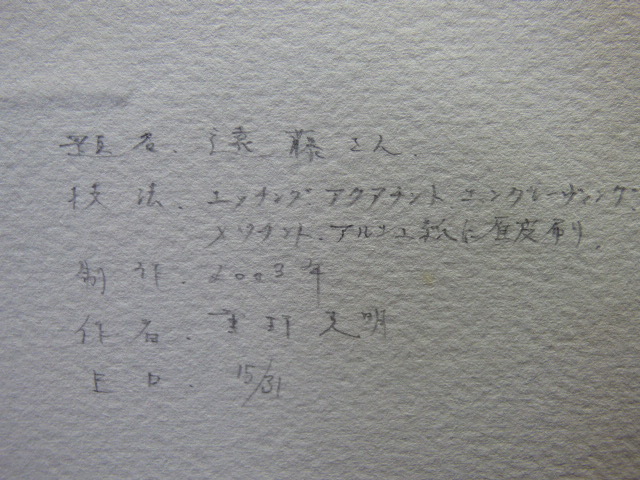 題名. 遠藤さん.
技法. エッチング アクアチント エングレーヴィング.
メゾチント. アルシュ紙に 度刷り.
制作. 2003年
作者. 重野克明
15/31